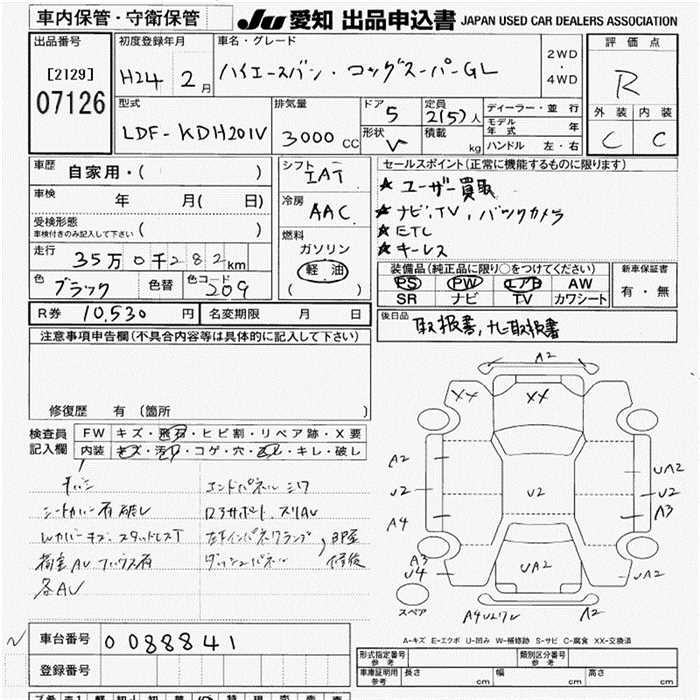 車内保管・守衛保管
JU 愛知 出品申込書 JAPAN USED CAR DEALERS ASSOCIATION
出品番号
[2129]
07126
初度登録年月
H24 2月
車名・グレード
ハイエースバン・ロングスーパーGL
2WD
・
4WD
評価点
R
外装 内装
C C
型式
LDF-KDH201V
排気量
3000 CC
ドア
5
形状
V
定員
2(5)人
積載
kg
ディーラー・並行
モデル年式 年
ハンドル 左・右
車歴
自家用・( )
車検
年 月( 日)
受検形態
車検付きのみ記入して下さい ( )
走行
35万0千282km
色
ブラック
色替
色コード
209
シフト
IAT
冷房
AAC
燃料
ガソリン
軽油
( )
セールスポイント(正常に機能するものに限ります)
★ ユーザー買取
★ ナビ,TV,バックカメラ
★ ETC
★ キーレス
装備品(純正品に限り○をつけてください)
PS PW エアB AW
SR ナビ TV カワシート
新車保証書
有・無
R券 10,530 円
名変期限 月 日
後日品
取扱書,ナビ取扱書
注意事項申告欄(不具合内容等は具体的に記入して下さい)
修復歴 有(箇所 )
検査員
記入欄
FW キズ・飛石・ヒビ割・リペア跡・X要
内装 キズ・汚れ・コゲ・穴・ズレ・キレ・破レ
シートカバー有 破レ
Wカバーキズ、スタッドレスT
荷室AU
各AU
エンドパネル シワ
コアサポート、ズリAU
左右インパネクランプ
ダッシュパネル
修後
A2
XX
XX
A2
U2
A4
U2
UA2
U2
A3
A3
U4
UA2
UA2
スペア
A2
A-キズ E-エクボ U-凹み W-補修跡 S-サビ C-腐食 XX-交換済
車台番号 0088841
登録番号
形式指定番号
参考
類別区分番号
参考
車庫証明用
参考
長さ cm 幅 cm 高さ cm